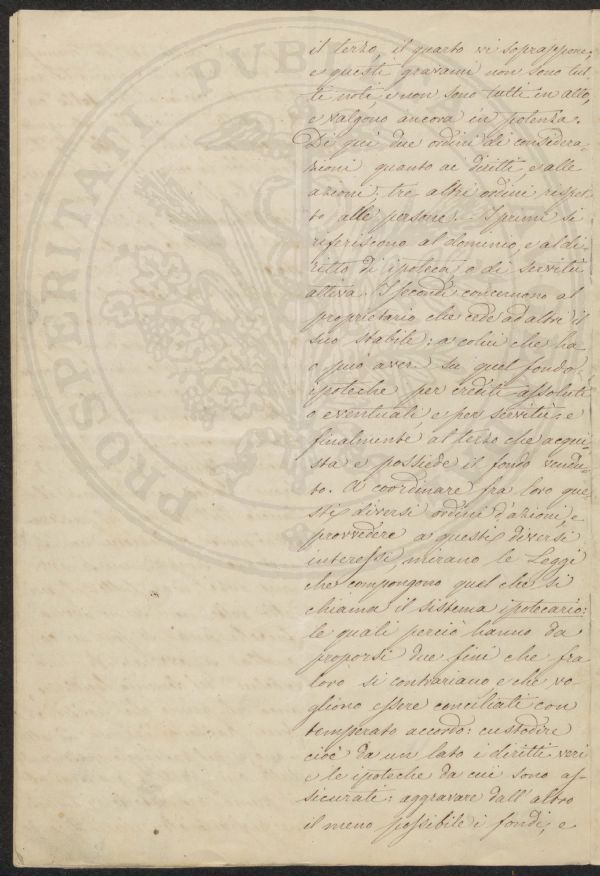 il terzo, il quarto vi soprappone,
e questi gravami non sono tut-
ti noti, e non sono tutti in atto,
e valgono ancora in potenza.
Di qui due ordini di considera-
zioni quanto ai diritti e alle
azioni; tre altri ordini rispet-
to alle persone. I primi si
riferiscono al dominio, e al di
ritto di ipoteca, o di servitù
attiva. I secondi concernono al
proprietario che cede ad altri il
suo stabile: a colui che ha
o può aver su quel fondo
ipoteche per crediti assoluti
o eventuali, e per servitù: e
finalmente al terzo che acqui-
sta e possiede il fondo vendu-
to. A coordinare fra loro que-
sti diversi ordini d'azioni, e
provvedere a questi diversi
interessi mirano le Leggi
che compongono quel che si
chiama il sistema ipotecario:
le quali perciò hanno da
proporsi due fini che fra
loro si contrariano e che vo-
gliono essere conciliati con
temperato accordo: custodire
cioè da un lato i diritti veri
e le ipoteche da cui sono as-
sicurati: aggravare dall'altro
il meno possibile i fondi, e
PROSPERITATI PVBL